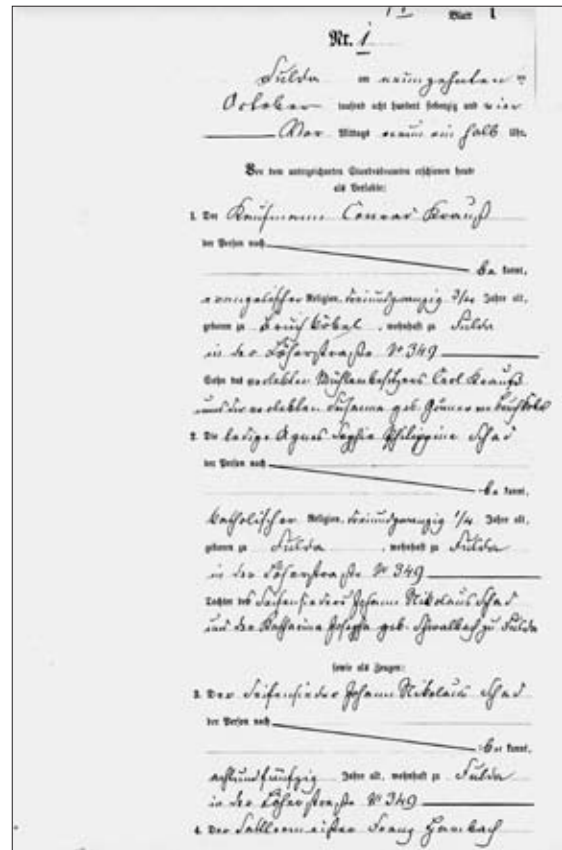 Blatt 1
Nr. 1
Fulda am neunzehnten
October tausend acht hundert siebenzig und vier
Vor Mittags neun ein halb Uhr.
Vor dem unterzeichneten Standesbeamten erschienen heute
als Verlobte:
1. Der Kaufmann Conrad Krauß
der Person nach
be kannt,
evangelischer Religion, dreiundzwanzig 3/4 Jahre alt,
geboren zu Bruchköbel, wohnhaft zu Fulda
in der Löherstraße № 349
Sohn des verlebten Mühlenbesitzers Carl Krauß
und der verlebten Susanna geb.
2. Die ledige Agnes Sophie Philippine Schad
der Person nach
be kannt,
katholischer Religion, dreiundzwanzig 1/4 Jahre alt,
geboren zu Fulda, wohnhaft zu Fulda
in der Löherstraße № 349
Tochter des Seifensieders Johann Nikolaus Schad
und der Katharina Josepha geb. Schwalbach zu Fulda
sowie als Zeugen:
3. Der Seifensieder Johann Nikolaus Schad
der Person nach
be kannt,
achtundfünfzig Jahre alt, wohnhaft zu Fulda
in der Löherstraße № 349
4. Der Sattlermeister Franz Hambach